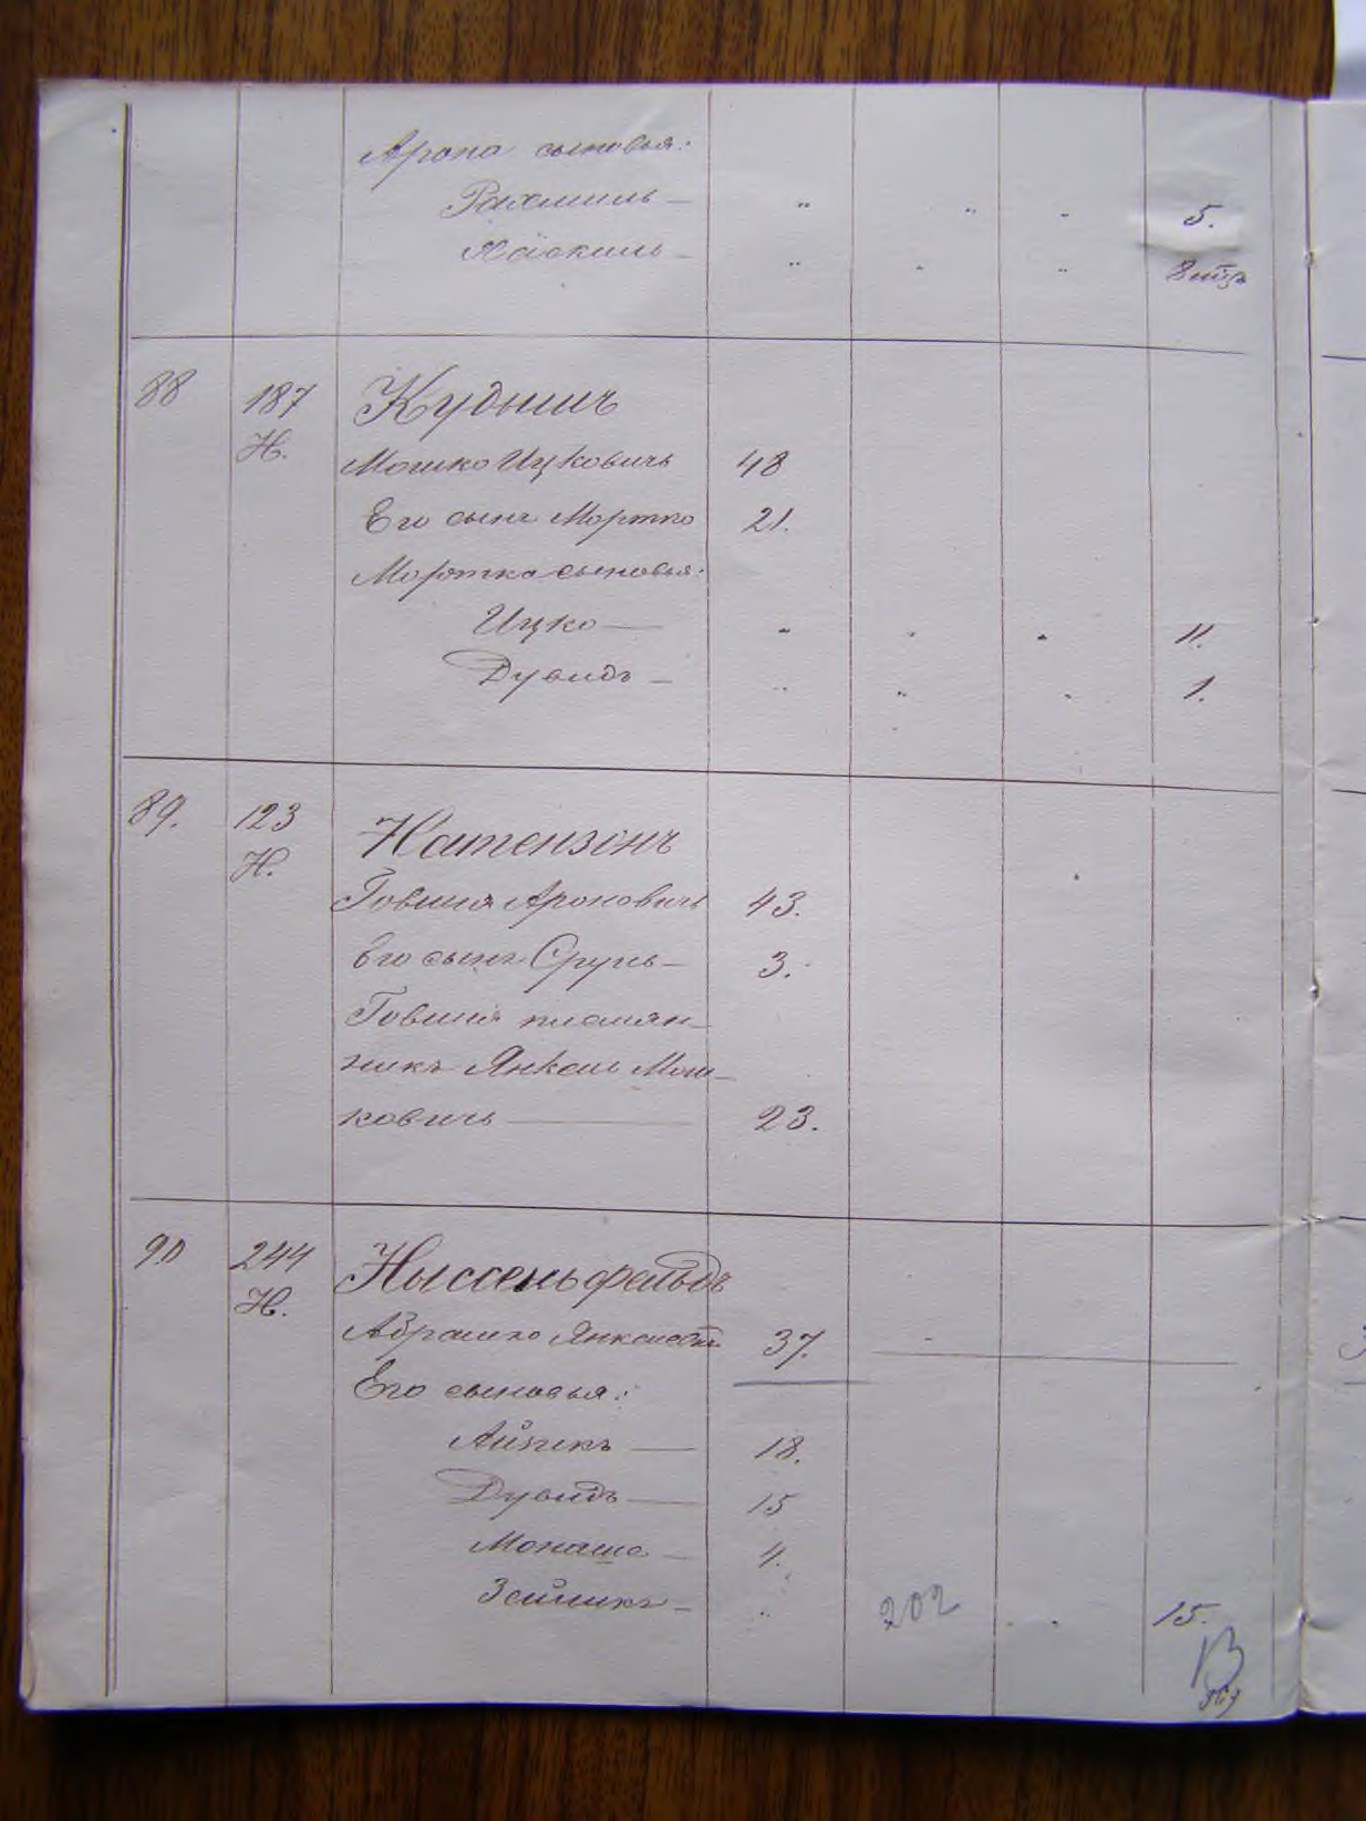 Арона сыновья:
Рахмиль — " " " 5.
Хаскиль — " " "
88 187 Кудышъ
Н. Мошко Ицковичъ 48
Его сынъ Мортко 21.
Мортка сыновья:
Ицко — " " " 11.
Дувидъ — " " " 1.
89. 123 Натензонъ
Н. Говшия Ароновичъ 43.
Его сынъ Сруль — 3.
Говшия племян-
никъ Янкель Мош-
ковичъ — 23.
90 244 Ныссеньфельдъ
Н. Абрамко 37.
Его сыновья:
Айзикъ — 18.
Дувидъ — 15
Монаше — 4.
Зейликъ — " 202 " " 15.